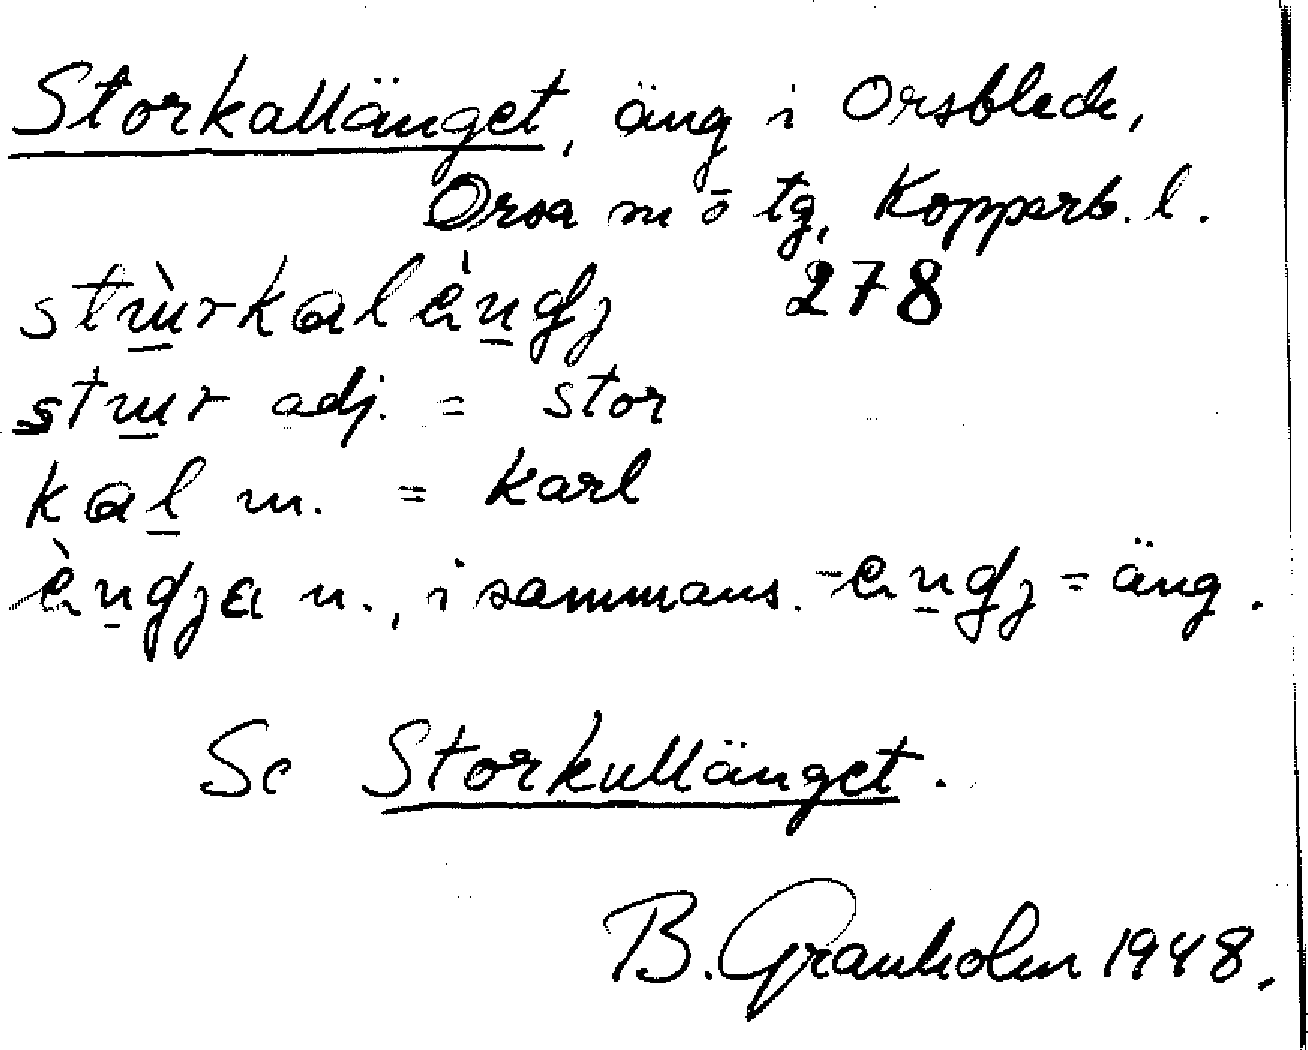 Storkallänget, äng i Orsbleck,
Orsa m ö tg, Kopparb. l.
stɯ̲̀rkalèn̲gȷ 278
stɯ̲r adj. = stor
kal̲ m. = karl
èn̲gȷa n., i sammans. -en̲gȷ = äng.
Se Storkullänget.
B. Granholm 1948.